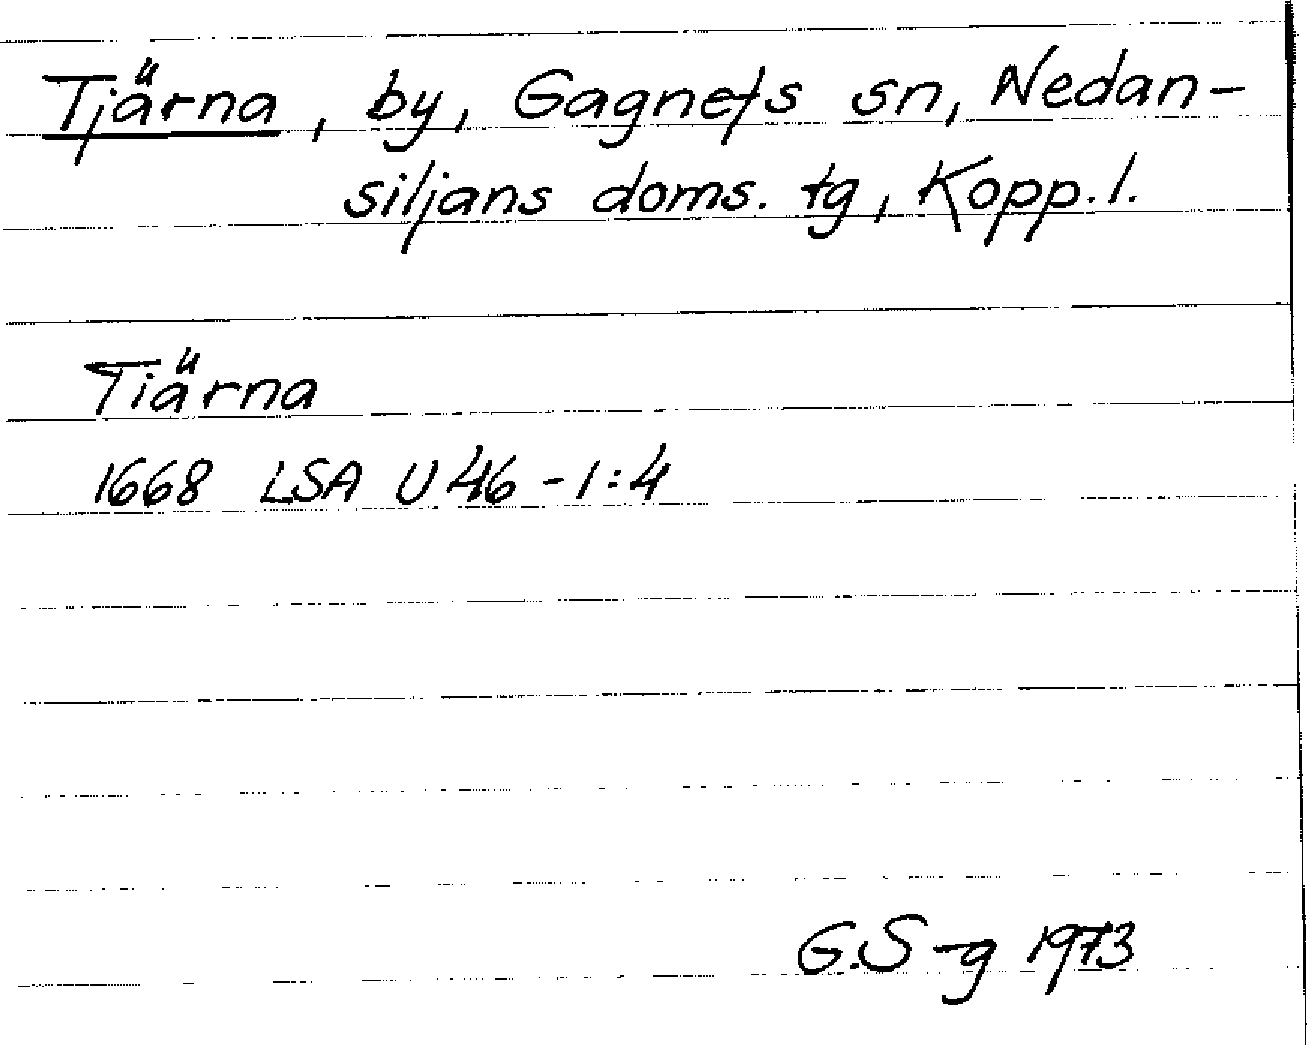 Tjärna, by, Gagnefs sn, Nedan-
siljans doms. tg, Kopp. l.
Tiärna
1668 LSA U 46 - 1:4
G.S-g 1973